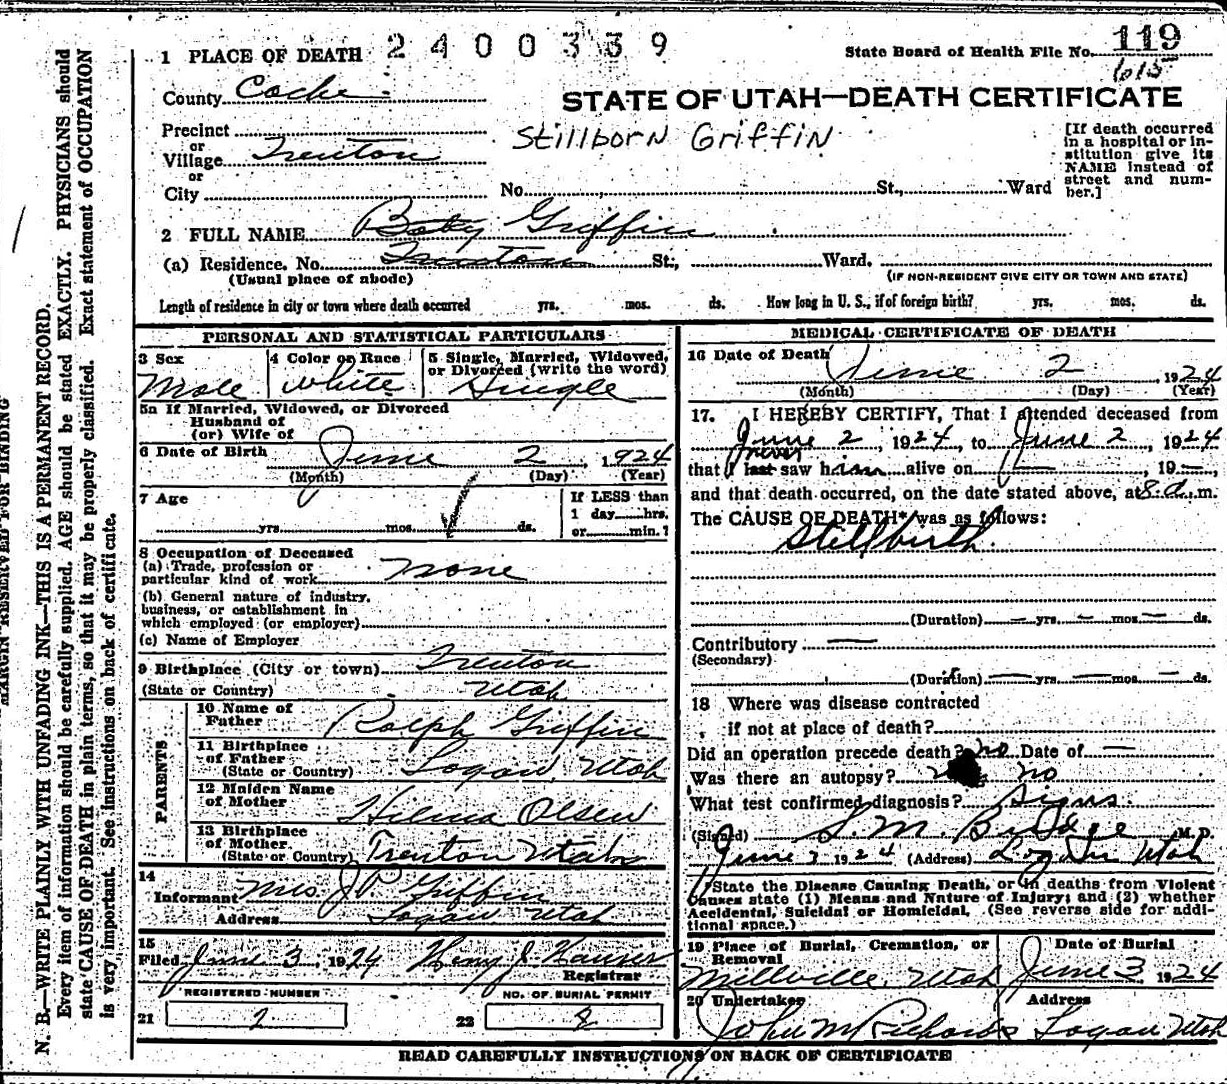 1 PLACE OF DEATH 2400339
State Board of Health File No. 119
615
County Cache
STATE OF UTAH—DEATH CERTIFICATE
Precinct
or
Village Trenton
or
City
Stillborn Griffin
No. St., Ward
[If death occurred
in a hospital or in-
stitution give its
NAME instead of
street and num-
ber.]
2 FULL NAME Baby Griffin
(a) Residence. No. Trenton St., Ward.
(Usual place of abode)
(IF NON-RESIDENT GIVE CITY OR TOWN AND STATE)
Length of residence in city or town where death occurred yrs. mos. ds. How long in U. S., if of foreign birth? yrs. mos. ds.
PERSONAL AND STATISTICAL PARTICULARS
3 Sex
Male
4 Color or Race
White
5 Single, Married, Widowed,
or Divorced (write the word)
Single
5a If Married, Widowed, or Divorced
Husband of
(or) Wife of
6 Date of Birth June 2, 1924
(Month) (Day) (Year)
7 Age
yrs. mos. ds.
If LESS than
1 day hrs.
or min.?
8 Occupation of Deceased
(a) Trade, profession or
particular kind of work none
(b) General nature of industry,
business, or establishment in
which employed (or employer)
(c) Name of Employer
9 Birthplace (City or town) Trenton
(State or Country) Utah
PARENTS
10 Name of
Father Ralph Griffin
11 Birthplace
of Father
(State or Country) Logan, Utah
12 Maiden Name
of Mother Hilma Olsen
13 Birthplace
of Mother
(State or Country) Trenton Utah
14
Informant Mrs. J P Griffin
Address Logan Utah
15
Filed June 3, 1924 Henry J Hauser
Registrar
REGISTERED NUMBER
21 2
NO. OF BURIAL PERMIT
22 8
MEDICAL CERTIFICATE OF DEATH
16 Date of Death June 2, 1924
(Month) (Day) (Year)
17. I HEREBY CERTIFY, That I attended deceased from
June 2, 1924, to June 2, 1924
never
that I last saw him alive on —, 19—,
and that death occurred, on the date stated above, at 8 a.m.
The CAUSE OF DEATH* was as follows:
Stillbirth.
(Duration) — yrs. — mos. — ds.
Contributory —
(Secondary)
(Duration) — yrs. — mos. — ds.
18 Where was disease contracted
if not at place of death?
Did an operation precede death? no Date of —
Was there an autopsy? no
What test confirmed diagnosis? Signs.
(Signed) S. M. Budge M. D.
June 3 1924 (Address) Logan Utah
*State the Disease Causing Death, or in deaths from Violent
Causes state (1) Means and Nature of Injury; and (2) whether
Accidental, Suicidal or Homicidal. (See reverse side for addi-
tional space.)
19 Place of Burial, Cremation, or
Removal
Millville, Utah
Date of Burial
June 3, 1924
20 Undertaker
John M Richards
Address
Logan Utah
READ CAREFULLY INSTRUCTIONS ON BACK OF CERTIFICATE
MARGIN RESERVED FOR BINDING
N. B.—WRITE PLAINLY WITH UNFADING INK—THIS IS A PERMANENT RECORD.
Every item of information should be carefully supplied. AGE should be stated EXACTLY. PHYSICIANS should
state CAUSE OF DEATH in plain terms, so that it may be properly classified. Exact statement of OCCUPATION
is very important. See instructions on back of certificate.